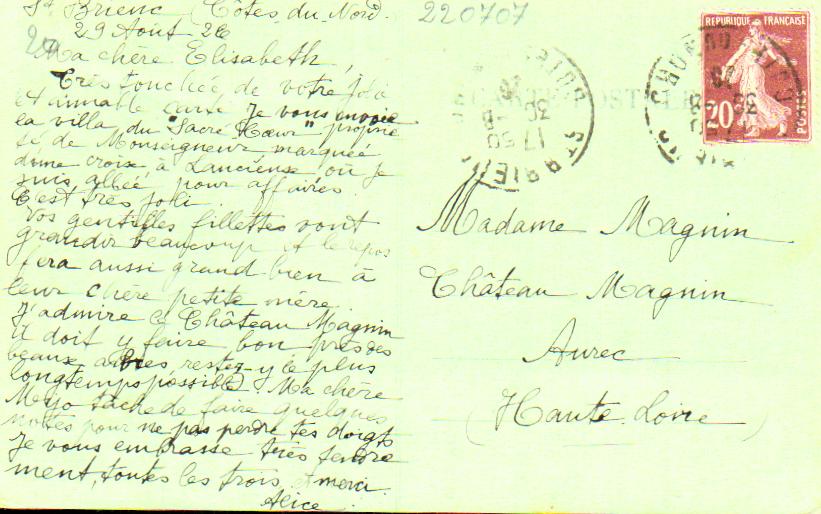 St Brieuc (Côtes du Nord).
29 Août 26
Ma chère Elisabeth,
Très touchée de votre jolie
et aimable carte je vous envoie
la villa du "Sacré Cœur" proprié
té, de Monseigneur marquée
d'une croix à où je
suis allée pour affaires.
C'est très joli.
Vos gentilles fillettes vont
grandir beaucoup et le repos
fera aussi grand bien à
leur chère petite mère.
J'admire ce Château Magnin
il doit y faire bon près des
beaux arbres, restez-y le plus
longtemps possible). Ma chère
Mayo tâche de faire quelques
notes pour ne pas perdre tes doigts
Je vous embrasse très tendre
ment, toutes les trois, et merci.
Alice.
220707
CARTE POSTALE
REPUBLIQUE FRANÇAISE
20
POSTES
ST BRIEUC
17 50
30
Madame Magnin
Château Magnin
Aurec
(Haute Loire)